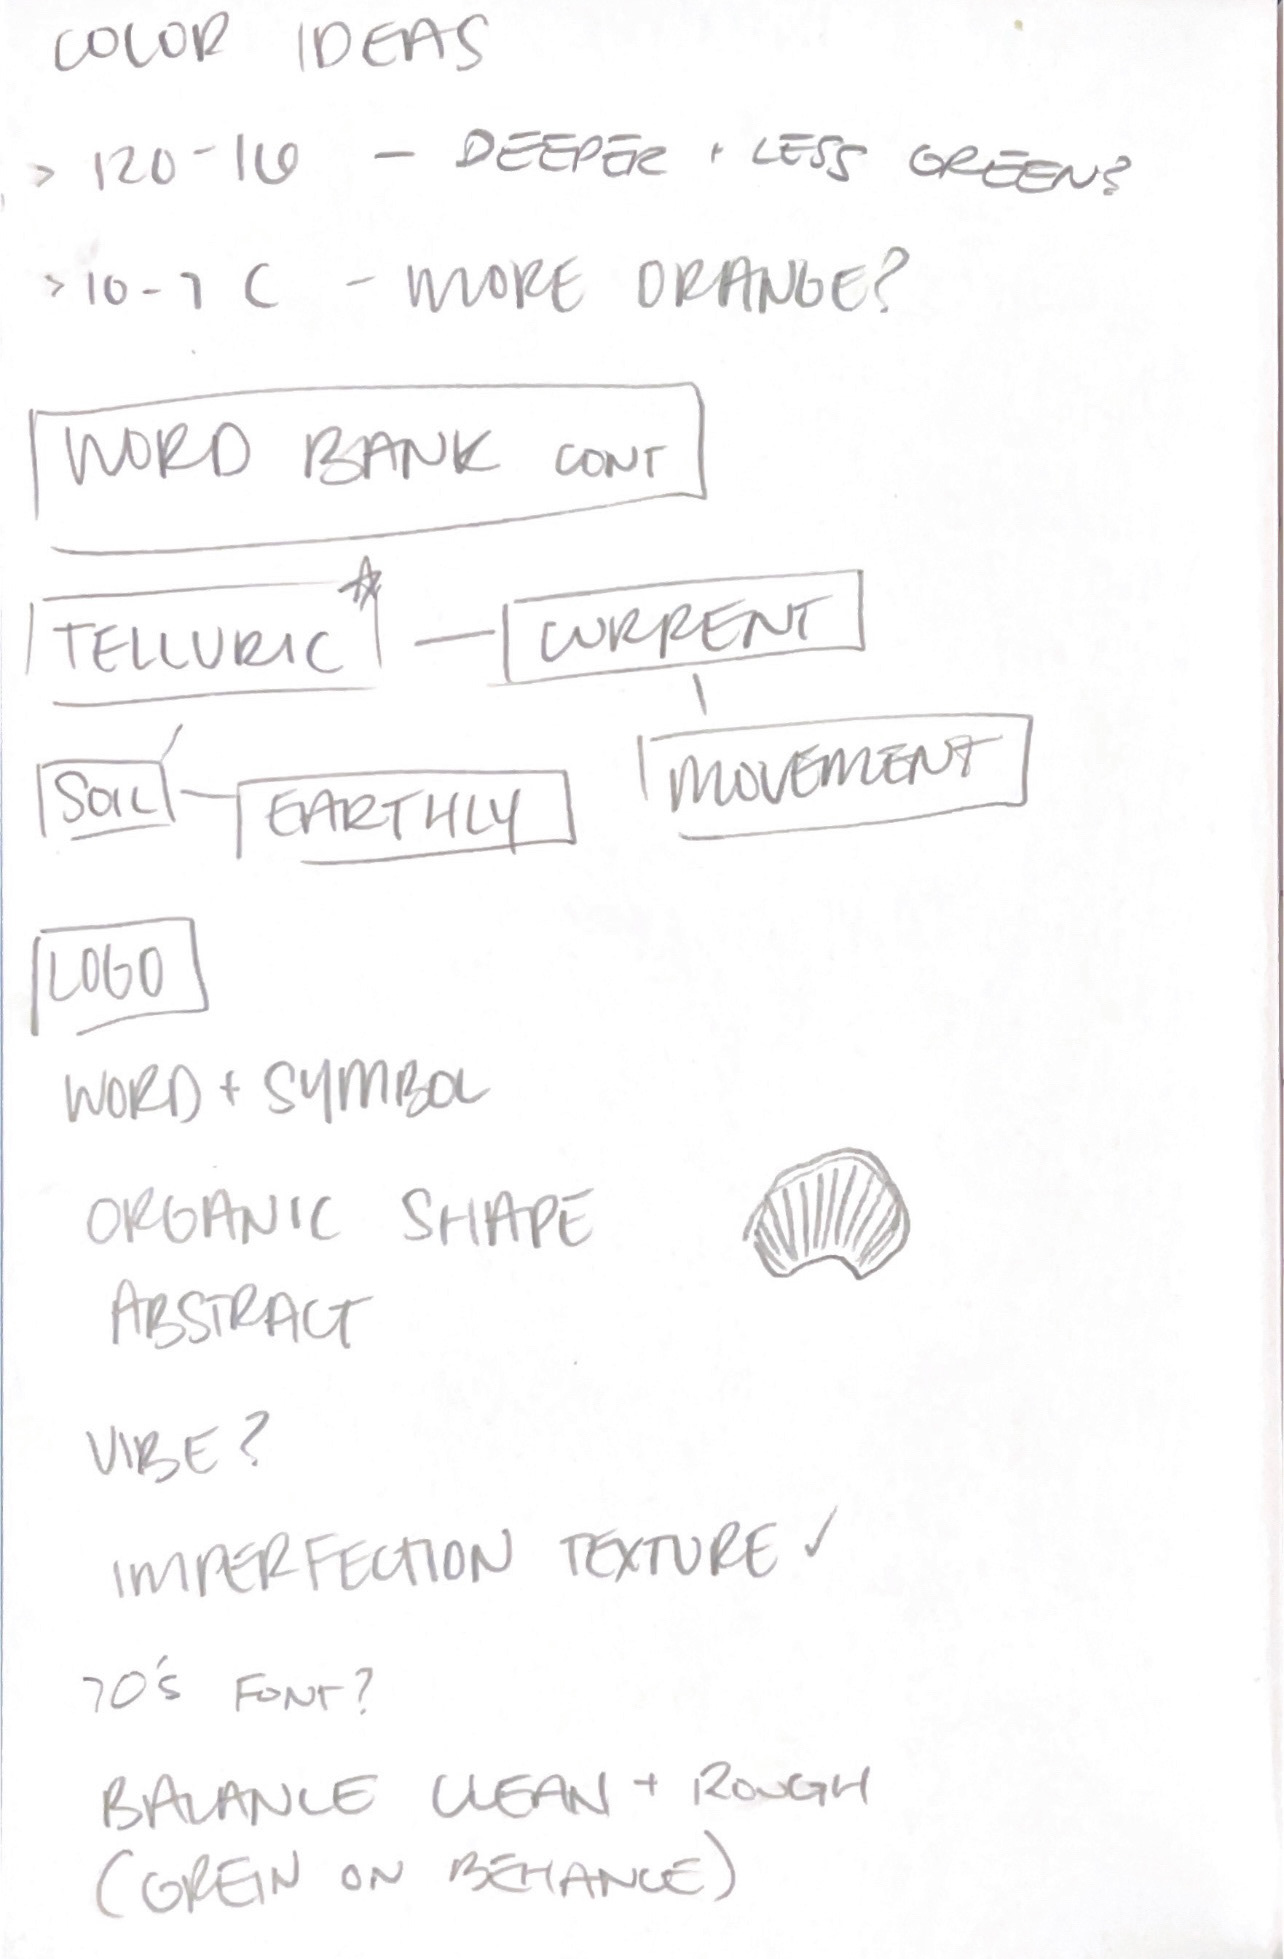 COLOR IDEAS
> 120-16 - DEEPER + LESS GREEN?
> 10-7 C - MORE ORANGE?
WORD BANK CONT
TELLURIC - CURRENT
SOIL - EARTHLY MOVEMENT
LOGO
WORD + SYMBOL
ORGANIC SHAPE
ABSTRACT
VIBE?
IMPERFECTION TEXTURE ✓
70's FONT?
BALANCE CLEAN + ROUGH
(GREIN ON BEHANCE)